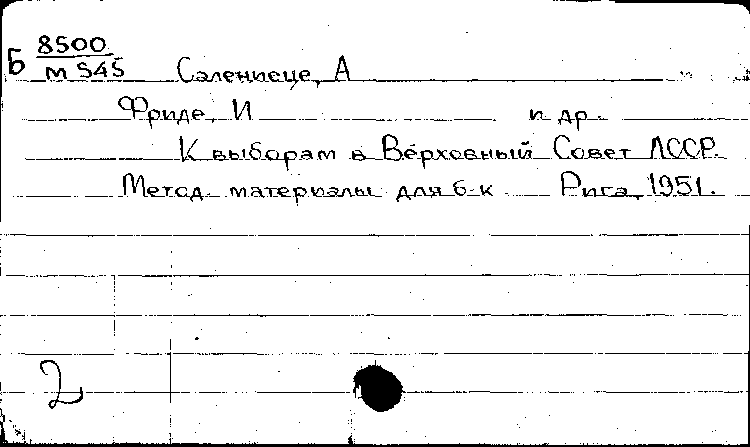 Б 8500
м 545 Саленисце, А
Фриде, И и др.
К выборам в Верховный Совет ЛССР.
Метод. материалы для б-к Рига, 1951.
2